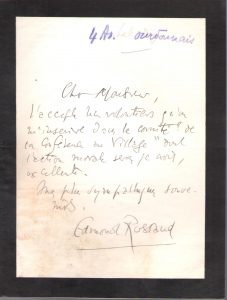 4 Av. La Bourdonnais
Cher Monsieur,
J'accepte très volontiers qu'on
m'inscrive dans le comité de
la Cafetière au Village" dont
l'action morale sera, je crois,
excellente.
Mes plus sympathiques souve-
nirs.
Edmond Rostand